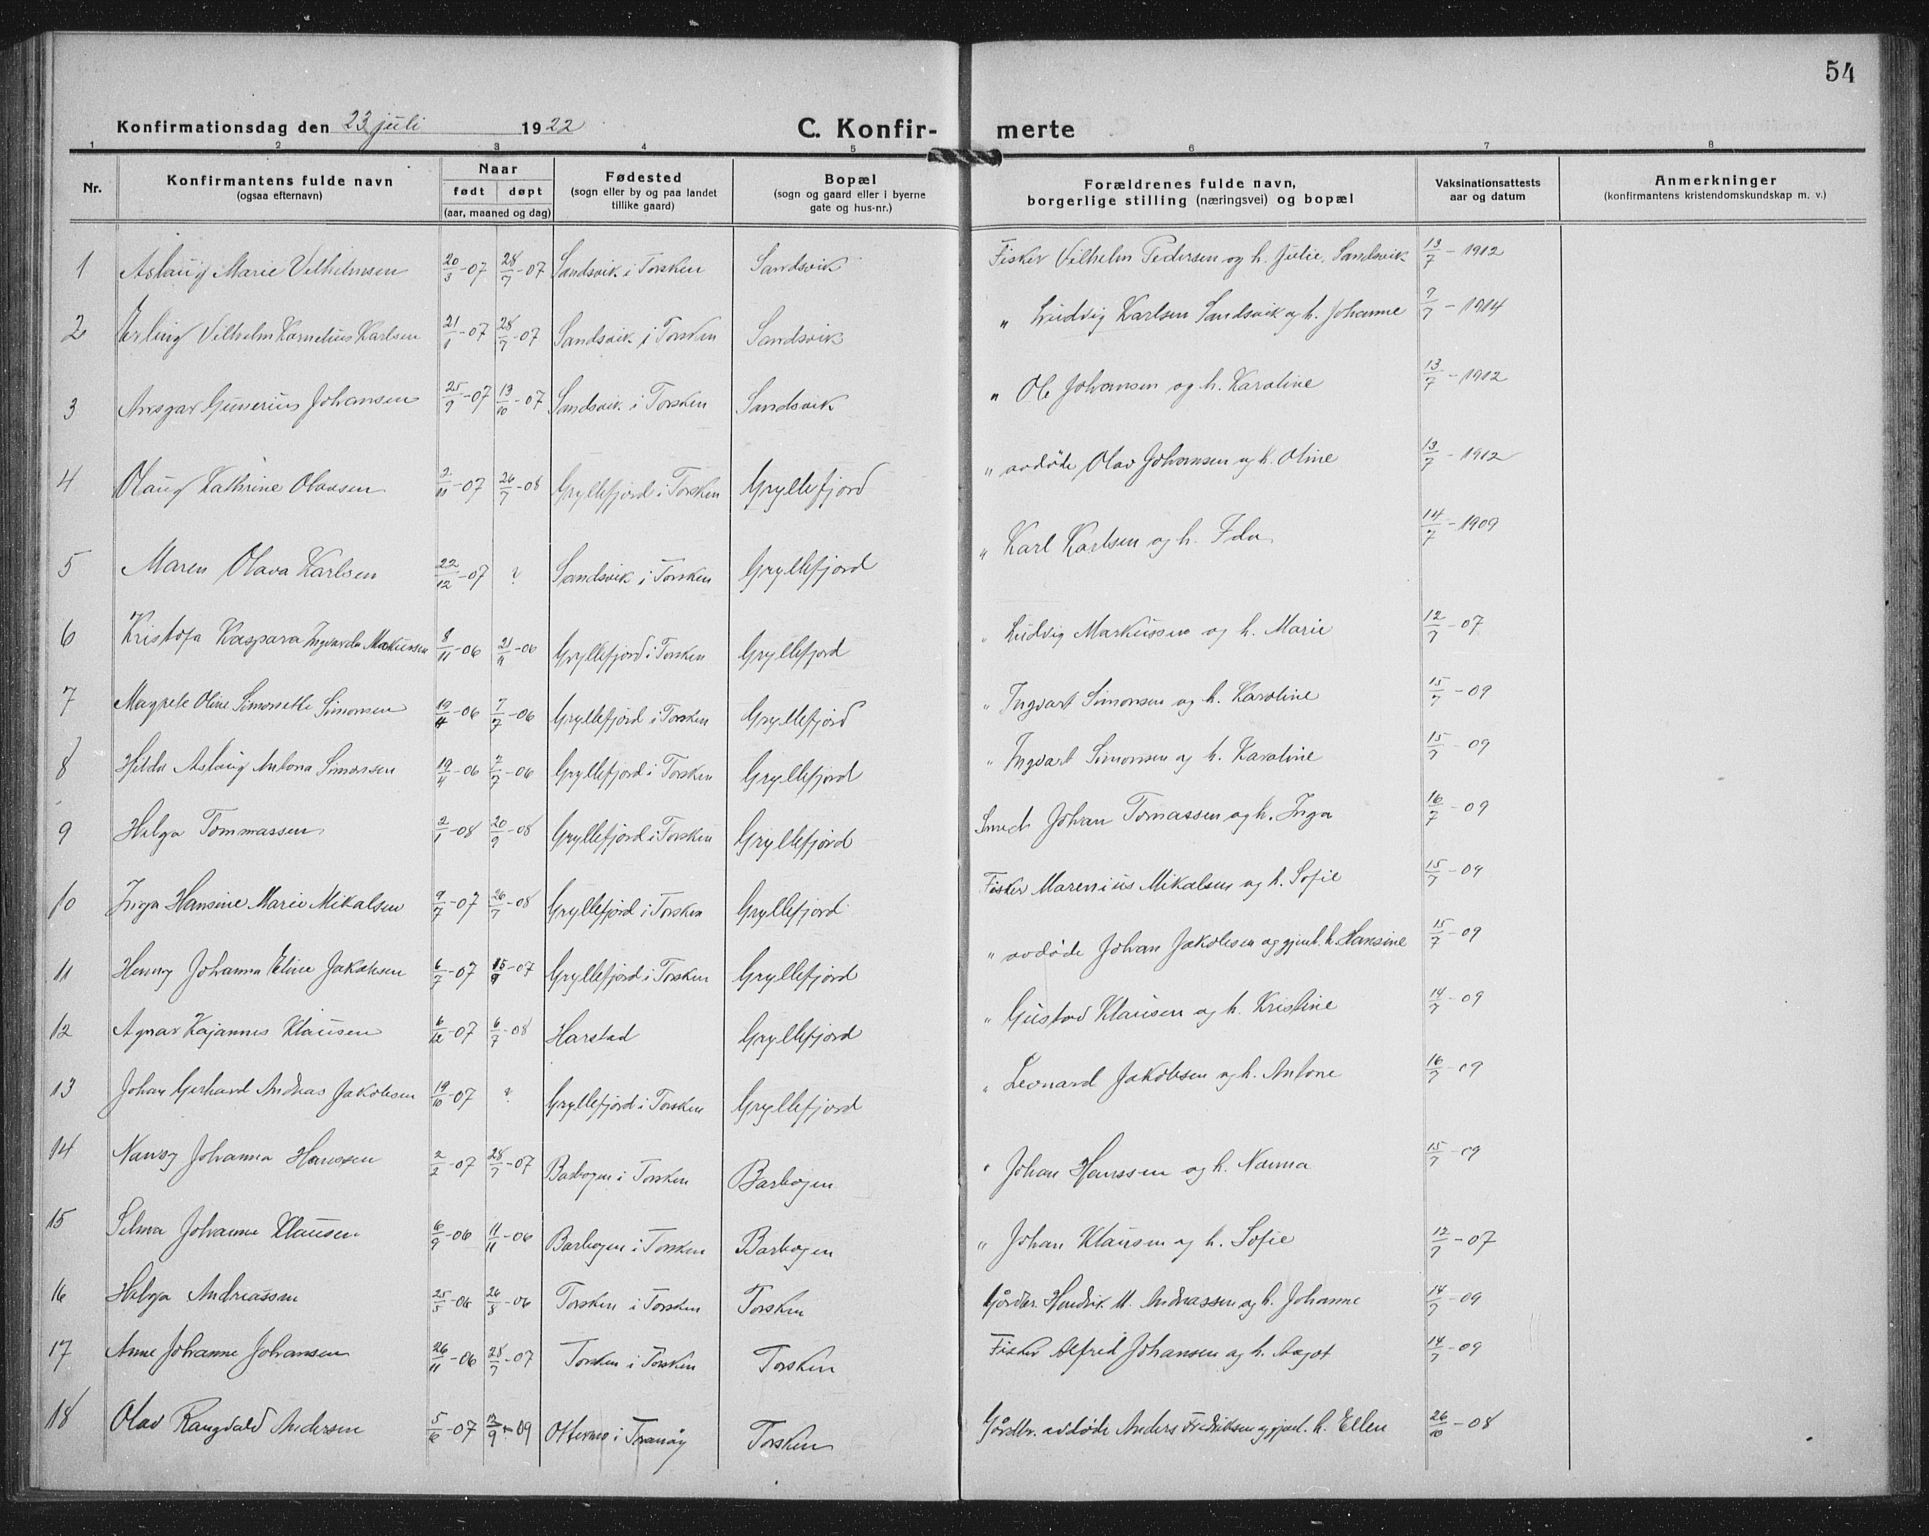 54
Konfirmationsdag den 23 juli 1922 C. Konfir- merte
1 2 3 4 5 6 7 8
Nr. Konfirmantens fulde navn (ogsaa efternavn) Naar født døpt (aar, maaned og dag) Fødested (sogn eller by og paa landet tillike gaard) Bopæl (sogn og gaard eller i byerne gate og hus-nr.) Forældrenes fulde navn, borgerlige stilling (næringsvei) og bopæl Vaksinationsattests aar og datum Anmerkninger (konfirmantens kristendomskundskap m. v.)
1 Aslaug Marie Vilhelmsen 20/3-07 28/7-07 Sandsvik i Torsken Sandsvik Fisker Vilhelm Pedersen og h. Julie, Sandsvik 13/7-1912
2 Erling Vilhelm Kornelius Karlsen 21/1-07 28/7-07 Sandsvik i Torsken Sandsvik " Ludvig Karlsen Sandsvik og h. Johanne 9/7-1914
3 Ansgar Gunerius Johansen 25/9-07 13/10-07 Sandsvik i Torsken Sandsvik " Ole Johansen og h. Karoline 13/7-1912
4 Olaug Kathrine Olausen 2/11-07 26/7-08 Gryllefjord i Torsken Gryllefjord " avdøde Olav Johansen og h. Oline 13/7-1912
5 Maren Olava Karlsen 22/12-07 ? Sandsvik i Torsken Gryllefjord " Karl Karlsen og h. Ida 14/7-1909
6 Kristofa Kaspara Ingvarda Markussen 8/11-06 21/11-06 Gryllefjord i Torsken Gryllefjord " Ludvig Markussen og h. Marie 12/7-07
7 Magrete Oline Simonette Simonsen 19/4-06 7/7-06 Gryllefjord i Torsken Gryllefjord " Ingvart Simonsen og h. Karoline 15/7-09
8 Hilda Aslaug Antona Simonsen 19/4-06 7/7-06 Gryllefjord i Torsken Gryllefjord " Ingvart Simonsen og h. Karoline 15/7-09
9 Helga Tommassen 2/1-08 20/9-08 Gryllefjord i Torsken Gryllefjord Smed Johan Tomassen og h. Inga 16/7-09
10 Inga Hansine Marie Mikalsen 9/7-07 26/7-08 Gryllefjord i Torsken Gryllefjord Fisker Marenius Mikalsen og h. Sofie 15/7-09
11 Henny Johanna Eline Jakobsen 6/7-07 15/9-07 Gryllefjord i Torsken Gryllefjord " avdøde Johan Jakobsen og gjenl. h. Hansine 15/7-09
12 Agnar Kajannes Klausen 6/12-07 6/7-08 Harstad Gryllefjord " Gustav Klausen og h. Kristine 14/7-09
13 Johan Gerhard Andreas Jakobsen 19/10-07 ? Gryllefjord i Torsken Gryllefjord " Leonard Jakobsen og h. Antone 16/7-09
14 Nancy Johanna Hanssen 2/2-07 28/7-07 Barbogen i Torsken Barbogen " Johan Hanssen og h. Nanna 15/7-09
15 Selma Johanne Klausen 6/9-06 11/11-06 Barbogen i Torsken Barbogen " Johan Klausen og h. Sofie 12/7-07
16 Helga Andreassen 25/5-06 26/8-06 Torsken i Torsken Torsken Gårdbr. Hendrik M. Andreassen og h. Johanne 14/7-09
17 Anne Johanne Johansen 26/11-06 28/7-07 Torsken i Torsken Torsken Fisker Alfred Johansen og h. Aagot 14/7-09
18 Olav Rangvald Andersen 5/6-07 12/9-09 i Tranøy Torsken Gårdbr. avdøde Anders Fredriksen og gjenl. h. Ellen 26/10-08